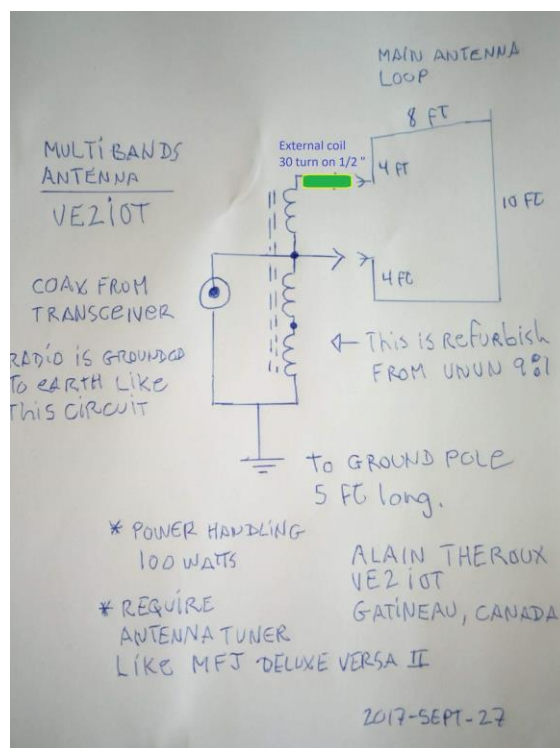 MAIN ANTENNA
LOOP
8 FT
MULTIBANDS
ANTENNA
VE2IOT
External coil
30 turn on 1/2 "
4 FT
10 FT
4 FT
COAX FROM
TRANSCEIVER
RADIO IS GROUNDED
TO EARTH LIKE
THIS CIRCUIT
This is REFURBISH
FROM UNUN 9:1
TO GROUND POLE
5 FT long.
* POWER HANDLING
100 WATTS
* REQUIRE
ANTENNA TUNER
LIKE MFJ DELUXE VERSA II
ALAIN THEROUX
VE2IOT
GATINEAU, CANADA
2017-SEPT-27